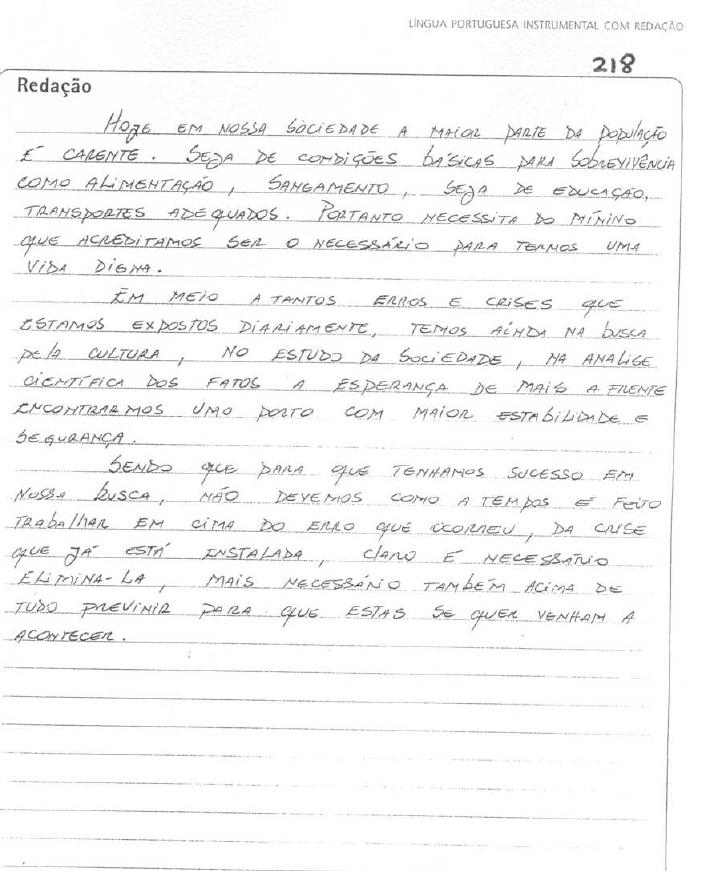 LÍNGUA PORTUGUESA INSTRUMENTAL COM REDAÇÃO
218
Redação
HOJE EM NOSSA SOCIEDADE A MAIOR PARTE DA POPULAÇÃO
É CARENTE. SEJA DE CONDIÇÕES BÁSICAS PARA SOBREVIVÊNCIA
COMO ALIMENTAÇÃO, SANEAMENTO, SEJA DE EDUCAÇÃO,
TRANSPORTES ADEQUADOS. PORTANTO NECESSITA DO MÍNINO
QUE ACREDITAMOS SER O NECESSÁRIO PARA TERMOS UMA
VIDA DIGNA.
EM MEIO A TANTOS ERROS E CRISES QUE
ESTAMOS EXPOSTOS DIARIAMENTE, TEMOS AINDA NA BUSCA
PELA CULTURA, NO ESTUDO DA SOCIEDADE, NA ANALISE
CIENTÍFICA DOS FATOS A ESPERANÇA DE MAIS A FRENTE
ENCONTRARMOS UMO PORTO COM MAIOR ESTABILIDADE E
SEGURANÇA.
SENDO QUE PARA QUE TENHAMOS SUCESSO EM
NOSSA BUSCA, NÃO DEVEMOS COMO A TEMPOS É FEITO
TRABALHAR EM CIMA DO ERRO QUE OCORREU, DA CRISE
QUE JÁ ESTÁ INSTALADA, CLARO É NECESSÁRIO
ELIMINA-LA, MAIS NECESSÁRIO TAMBÉM ACIMA DE
TUDO PREVINIR PARA QUE ESTAS SE QUER VENHAM A
ACONTECER.